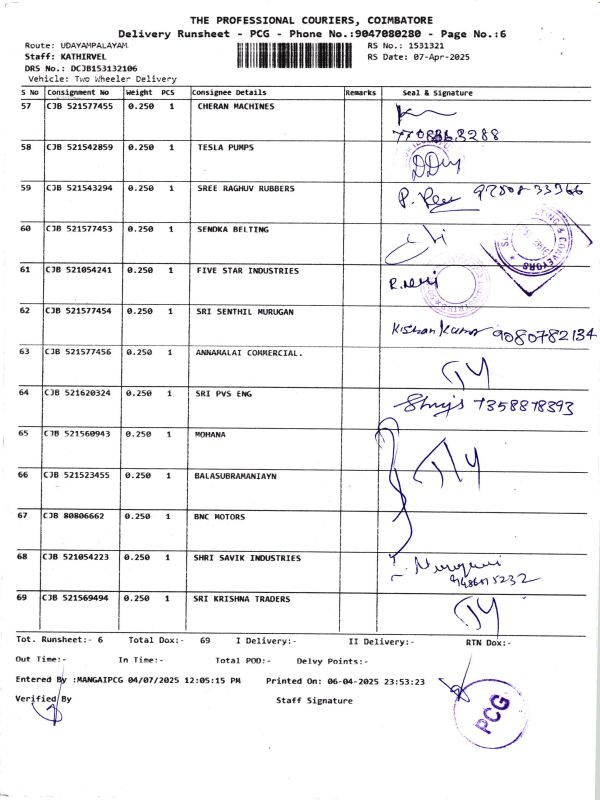 THE PROFESSIONAL COURIERS, COIMBATORE
Delivery Runsheet - PCG - Phone No.:9047080280 - Page No.:6
Route: UDAYAMPALAYAM RS No.: 1531321
Staff: KATHIRVEL RS Date: 07-Apr-2025
DRS No.: DCJB153132106
Vehicle: Two Wheeler Delivery
S No Consignment No Weight PCS Consignee Details Remarks Seal & Signature
57 CJB 521577455 0.250 1 CHERAN MACHINES
58 CJB 521542859 0.250 1 TESLA PUMPS
59 CJB 521543294 0.250 1 SREE RAGHUV RUBBERS
60 CJB 521577453 0.250 1 SENDKA BELTING
61 CJB 521054241 0.250 1 FIVE STAR INDUSTRIES
62 CJB 521577454 0.250 1 SRI SENTHIL MURUGAN Kishan Kumar 9080782134
63 CJB 521577456 0.250 1 ANNAMALAI COMMERCIAL.
64 CJB 521620324 0.250 1 SRI PVS ENG 7358878393
65 CJB 521560943 0.250 1 MOHANA
66 CJB 521523455 0.250 1 BALASUBRAMANIAYN
67 CJB 80806662 0.250 1 BNC MOTORS
68 CJB 521054223 0.250 1 SHRI SAVIK INDUSTRIES
69 CJB 521569494 0.250 1 SRI KRISHNA TRADERS
Tot. Runsheet:- 6 Total Dox:- 69 I Delivery:- II Delivery:- RTN Dox:-
Out Time:- In Time:- Total POD:- Delvy Points:-
Entered By :MANGAIPCG 04/07/2025 12:05:15 PM Printed On: 06-04-2025 23:53:23
Verified By Staff Signature
PCG